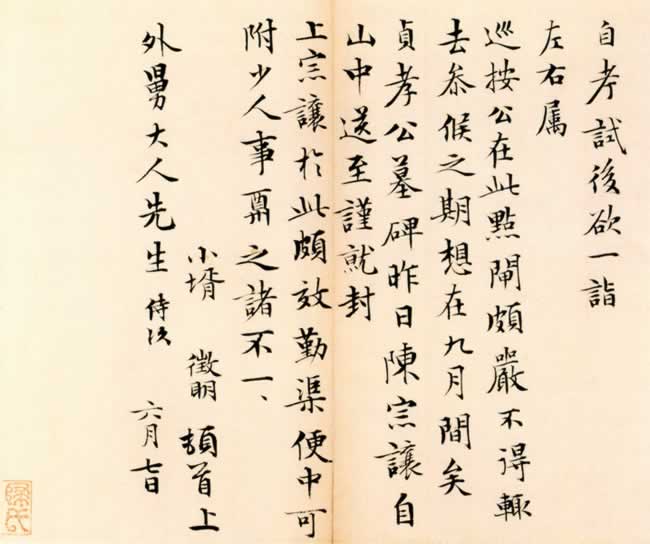 自考試後欲一詣
左右属
巡按公在此點閘頗嚴不得輙
去叅候之期想在九月間矣
貞孝公墓碑昨日陳宗讓自
山中送至謹就封
上宗讓於此頗效勤渠便中可
附少人事鼐之諸不一、
小壻 徵明 頓首上
外舅大人先生 侍次
六月七日